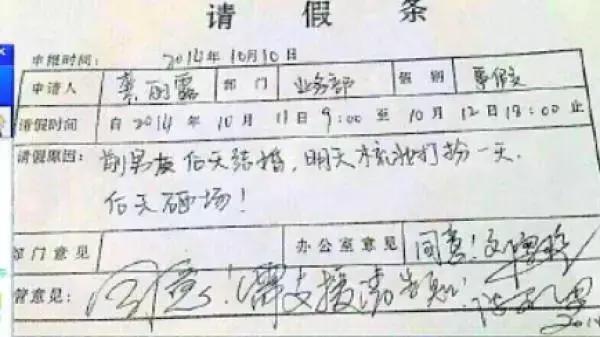 请 假 条
申报时间： 2014年10月10日
申请人 龚丽露 部门 业务部 假别 事假
请假时间 自2014年10月11日9:00至10月12日18:00止
请假原因： 前男友后天结婚，明天梳妆打扮一天，
后天砸场！
部门意见 办公室意见 同意！
管意见： 同意！需支援请告知！
2014